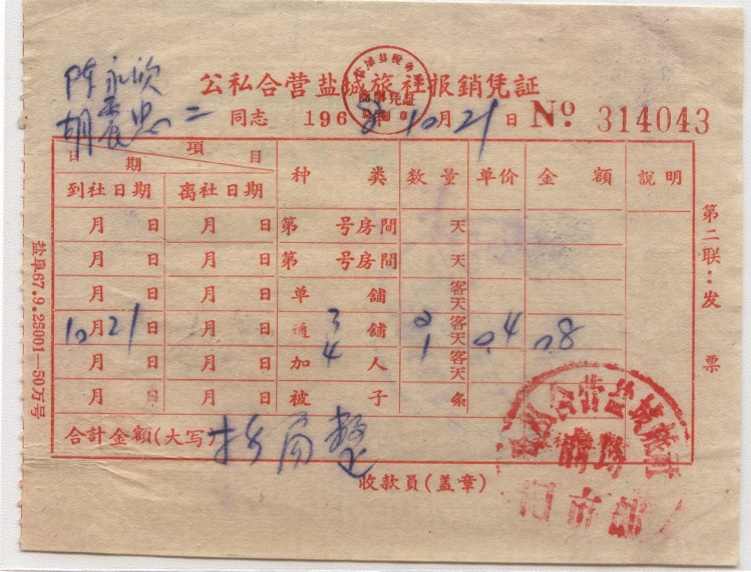 陈永欣
胡震忠二
公私合营盐城旅社报銷凭証
同志 1968年10月21日 № 314043
項目
日期
种类 数量 单价 金額 說明
到社日期 离社日期
月日 月日 第号房間 天
月日 月日 第号房間 天
月日 月日 单舖 客天
10月21日 月日 通3舖 2客天 0.4 0.8
月日 月日 加4人 1客天
月日 月日 被子 条
合計金額(大写)
收款員(盖章)
第二联:发票
盐阜67.9.25001—50万号
公私合营盐城旅社
門市部